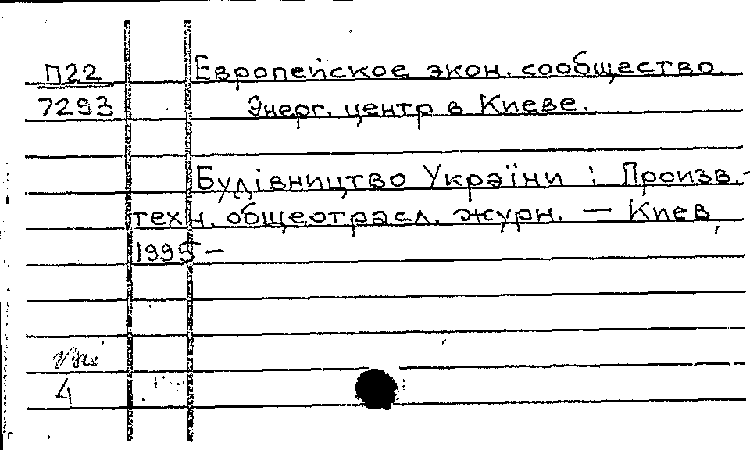 П22 Европейское экон. сообщество.
7293 Энерг. центр в Киеве.
Будівництво України : Произв.-
техн. общеотрасл. журн. — Киев,
1995 —
4